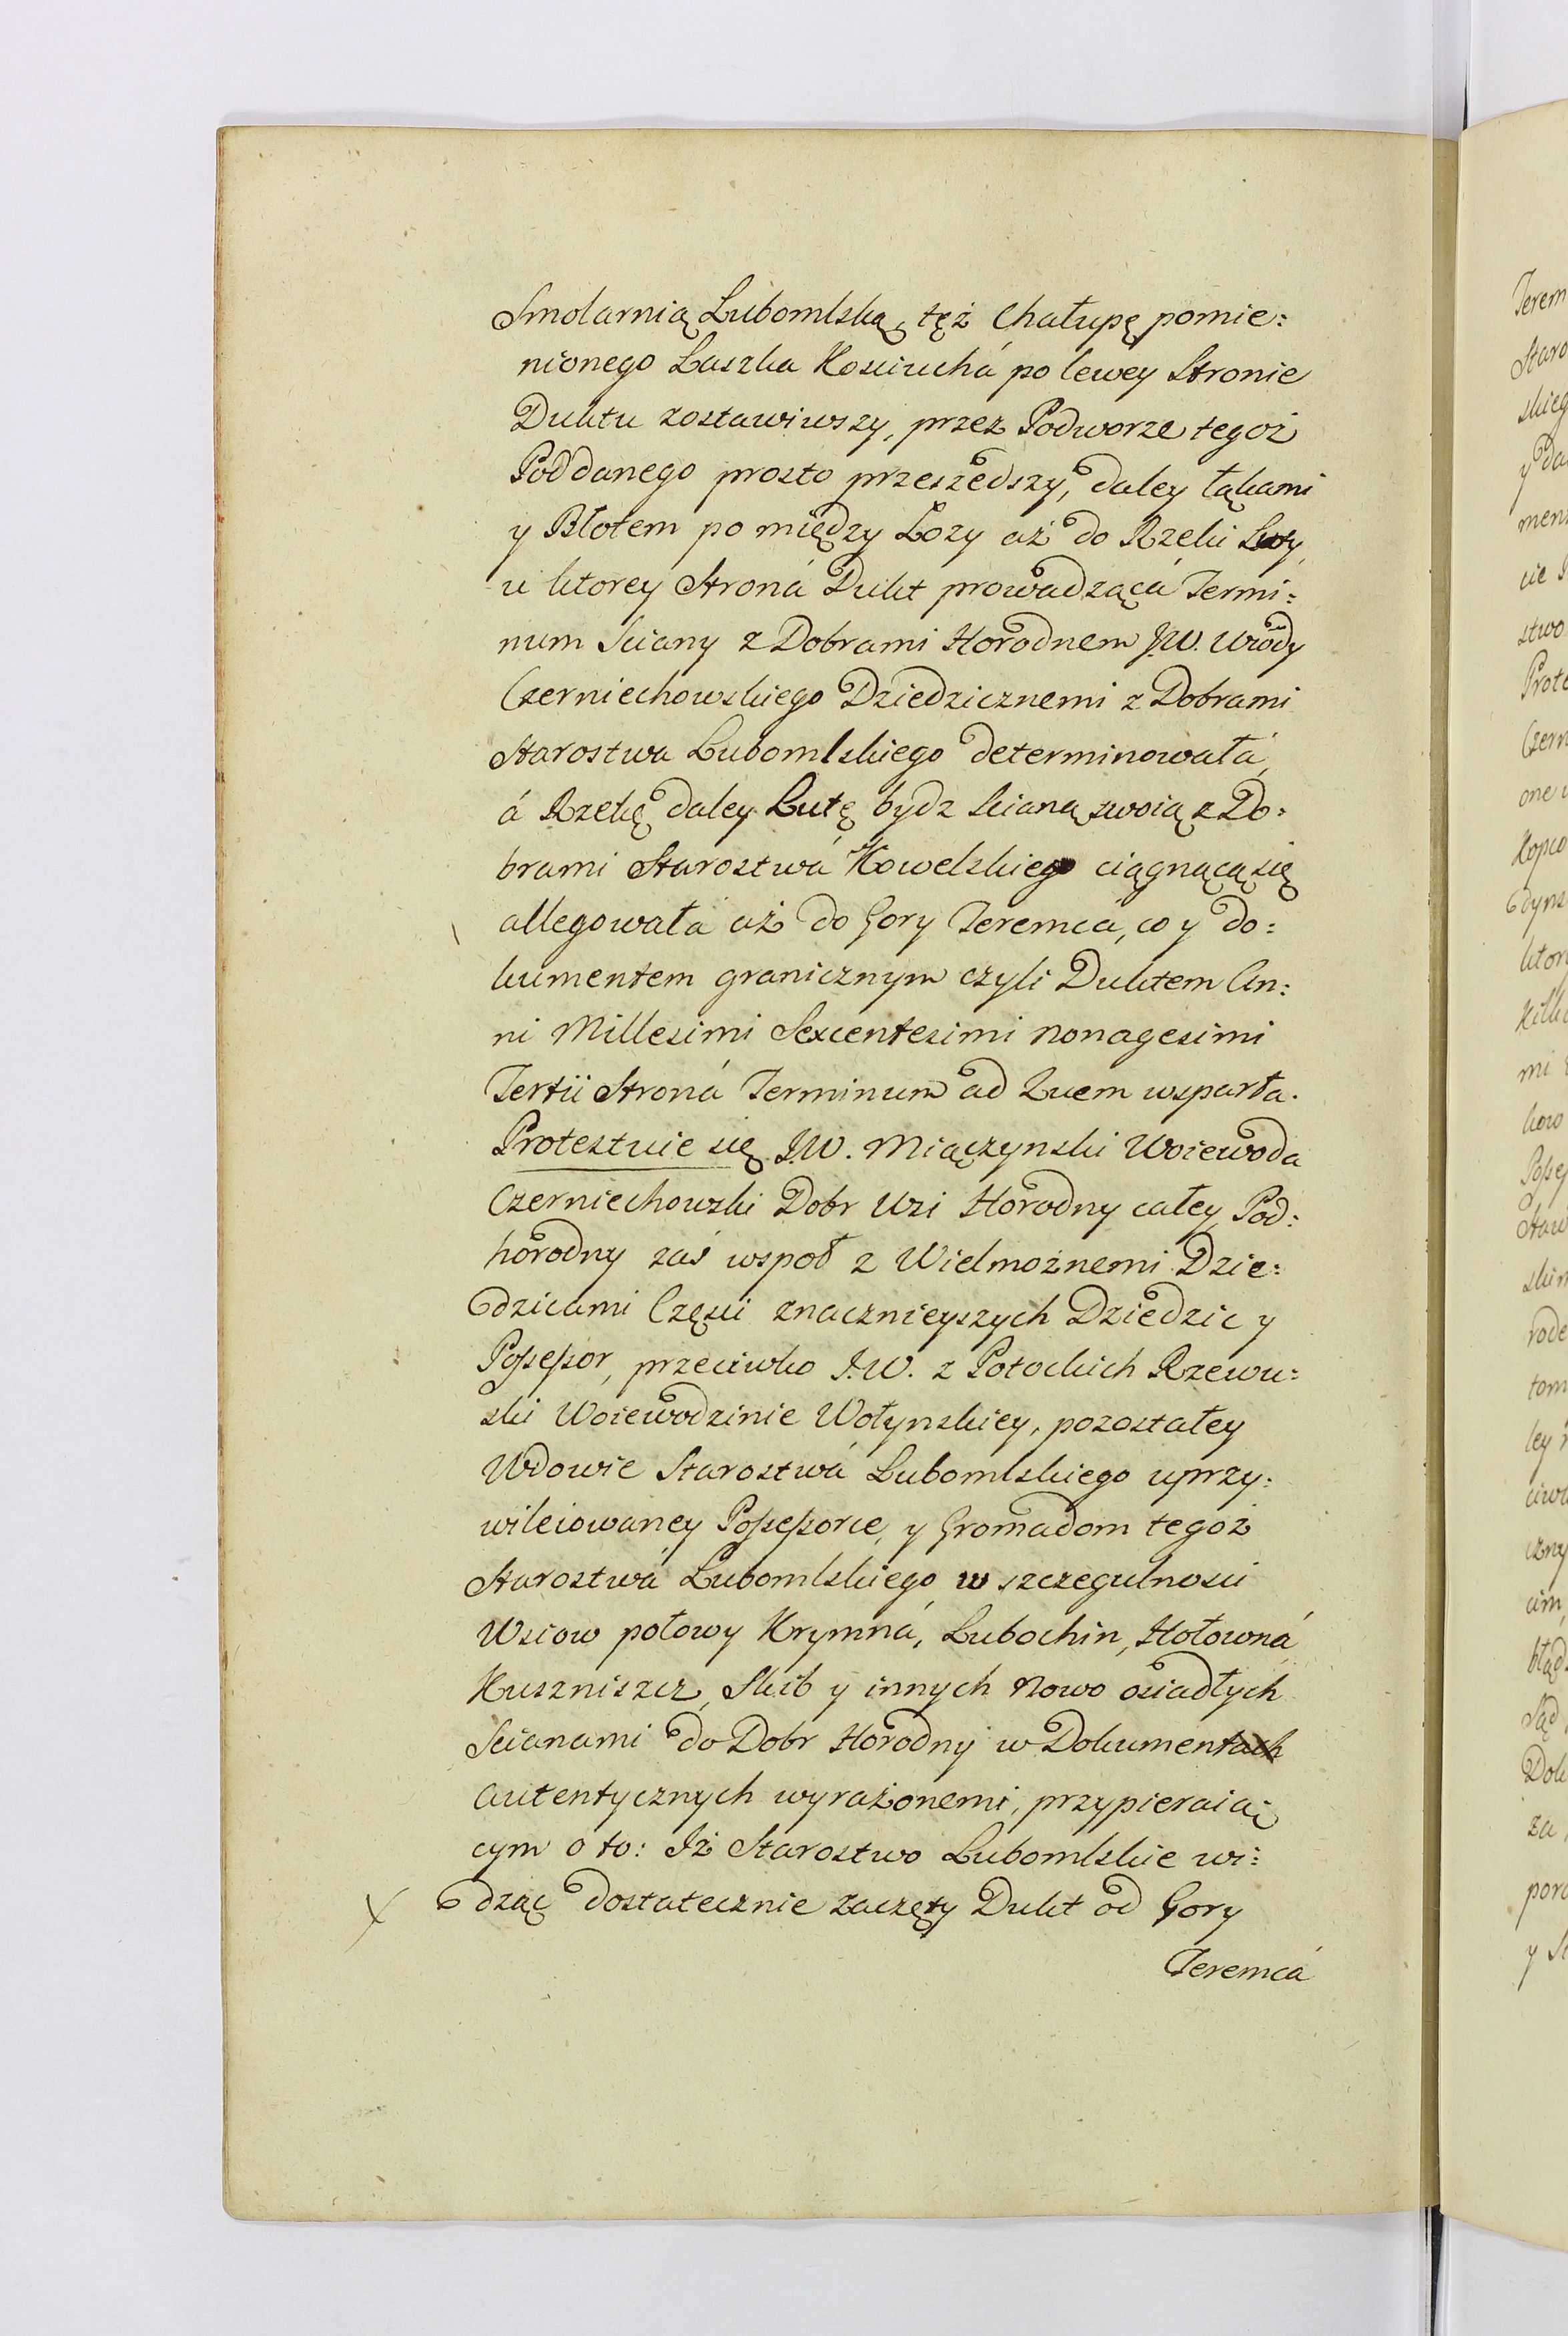 Smolarnią Lubomlską, tęż Chałupę pomie:
nionego Laszka Kosciuchá po lewey Stronie
Duktu zostawiwszy, przez Podworze tegoż
Poddanego prosto przeszedszy, daley łąkami
y Błotem po między Łozy aż do Rzeki Luty,
u ktorey Stroná Dukt prowadzącá Termi:
num Sciany z Dobrami Horodnem J.W. Wdy
Czerniechowskiego Dziedzicznemi z Dobrami
Starostwa Lubomlskiego determinowałá,
á Rzekę daley Lutę bydz scianą swoią z Do:
brami Starostwá Kowelskiego ciągnącą się
allegowałá aż do Gory Teremcá, co y do:
kumentem granicznym czyli Duktem An:
ni Millesimi Sexcentesimi Nonagesimi
Tertii Stroná Terminum ad Quem wsparła.
Protestuie się J.W. Miączynski Woiewoda
Czerniechowski Dobr Wsi Horodny całey, Pod:
horodny zaś wspoł z Wielmożnemi Dzie:
dzicami Częsci znacznieyszych Dziedzic y
Possessor, przeciwko J.W. z Potockich Rzewu:
ski Woiewodzinie Wołynskiey, pozostałey
Wdowie Starostwá Lubomlskiego uprzy:
wileiowaney Possessorce, y Gromadom tegoż
Starostwá Lubomlskiego w szczegulnosci
Wsiow połowy Krymná, Lubochin, Hołowná
Kuszniszcz, Skib y innych Nowo osiadłych
Scianami do Dobr Horodny w Dokumentach
Autentycznych wyrażonemi, przypieraią
cym o to: Iż Starostwo Lubomlskie wi:
dząc dostatecznie zaczęty Dukt od Gory
Teremcá